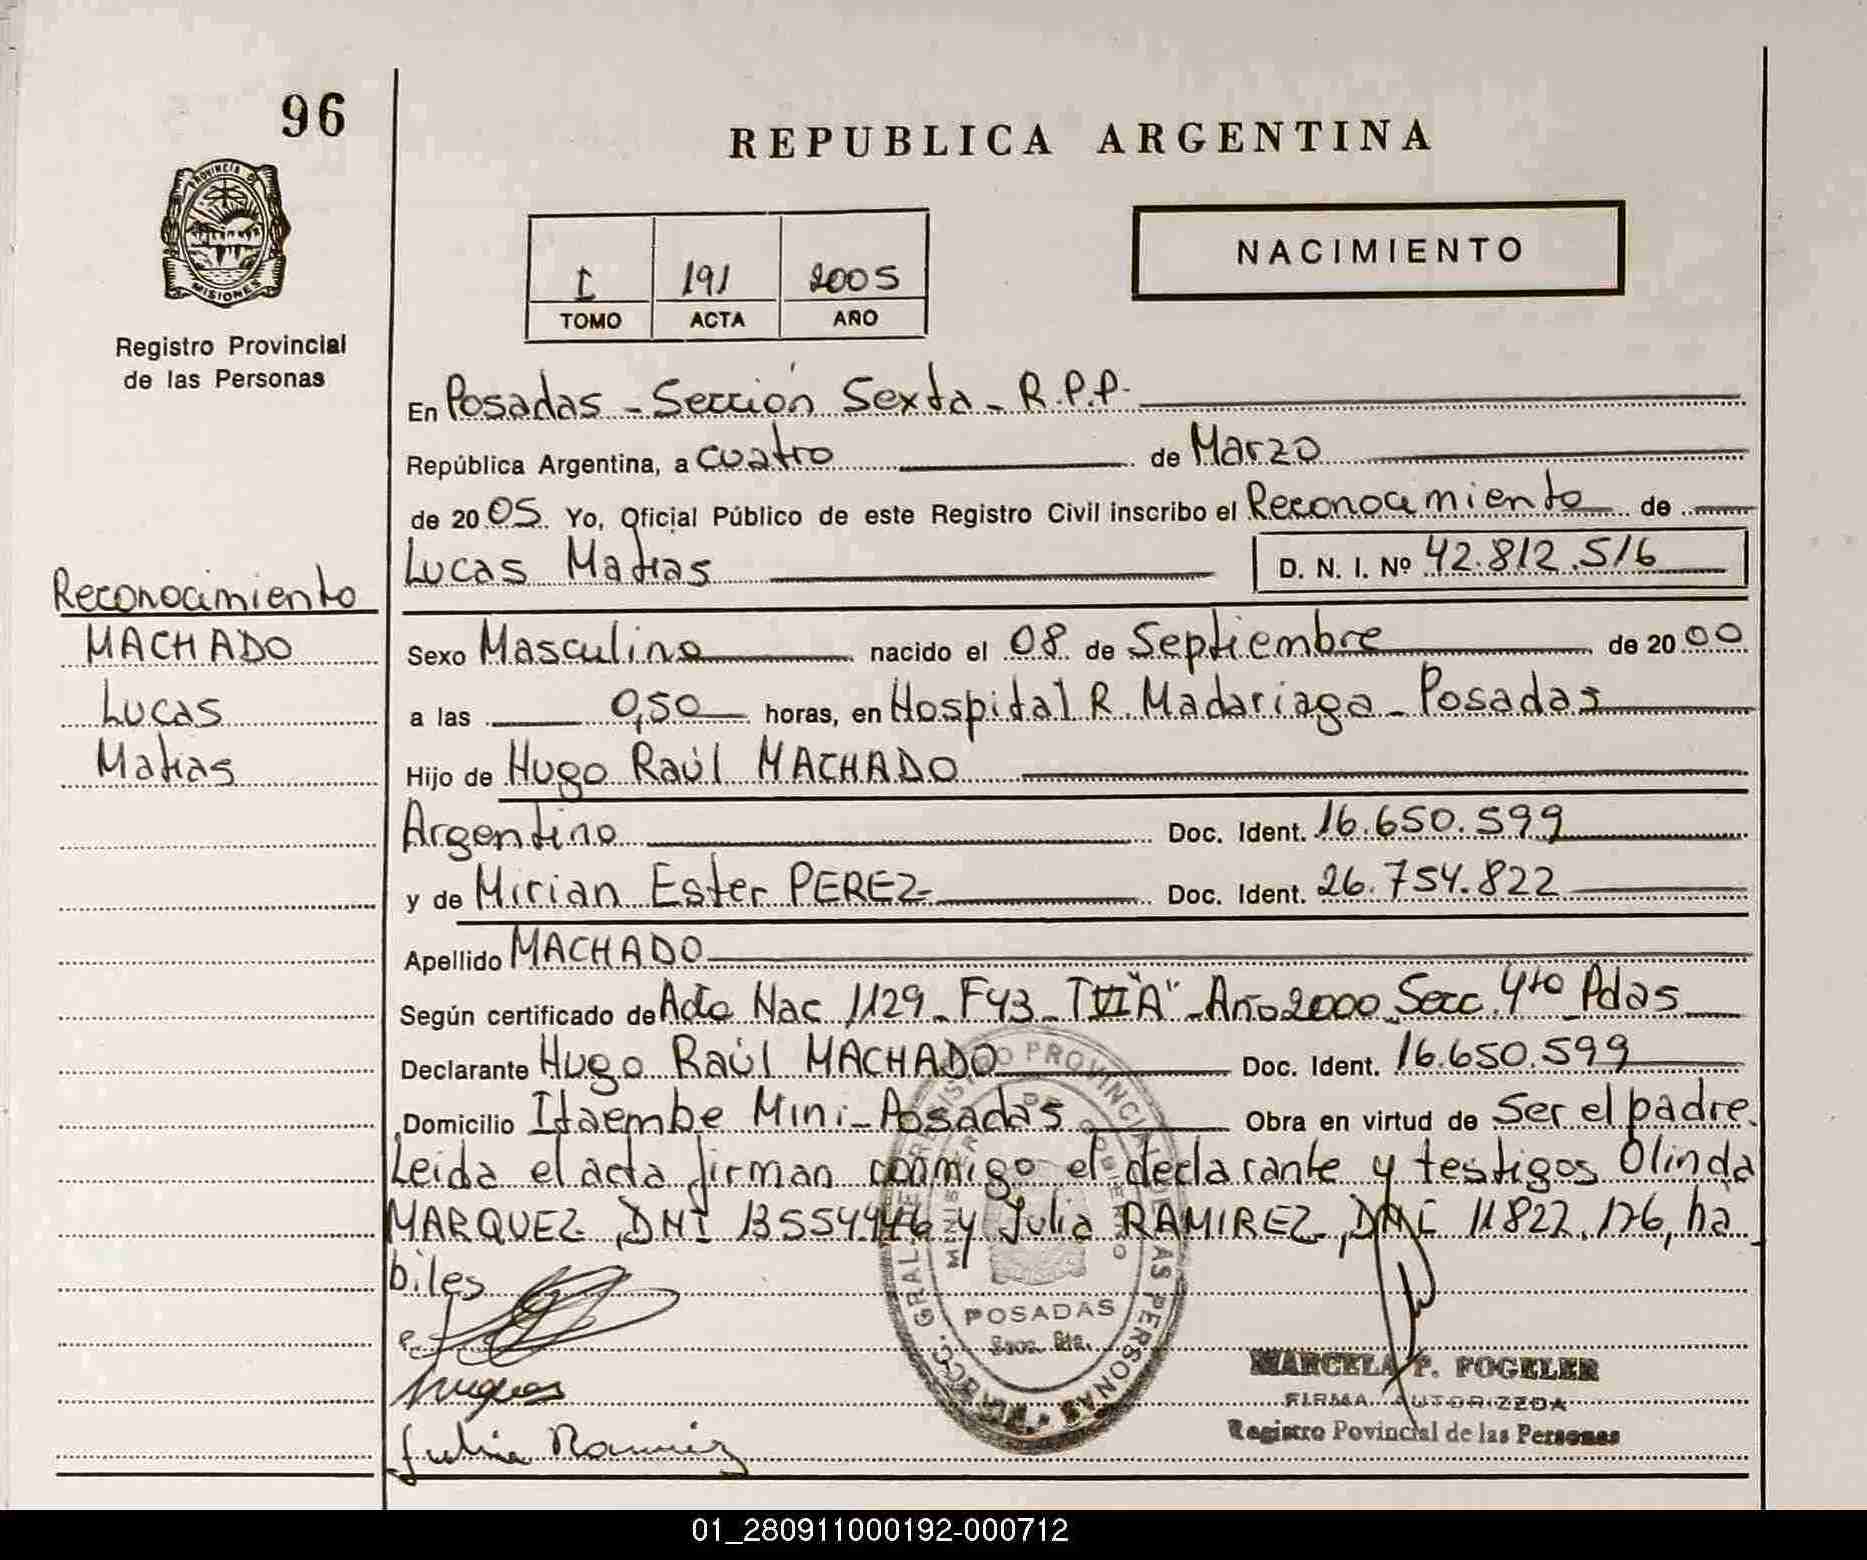 96
REPUBLICA ARGENTINA
PROVINCIA DE
MISIONES
Registro Provincial
de las Personas
I 191 2005
TOMO ACTA AÑO
NACIMIENTO
En Posadas - Sección Sexta - R.P.P.
República Argentina, a cuatro de Marzo
de 2005 Yo, Oficial Público de este Registro Civil inscribo el Reconocimiento de
Lucas Matias D. N. I. Nº 42.812.516
Reconocimiento
MACHADO
Lucas
Matias
Sexo Masculino nacido el 08 de Septiembre de 2000
a las 0,50 horas, en Hospital R. Madariaga - Posadas
Hijo de Hugo Raúl MACHADO
Argentino Doc. Ident. 16.650.599
y de Mirian Ester PEREZ- Doc. Ident. 26.754.822
Apellido MACHADO
Según certificado de Acta Nac 1129 - F43 - TVI "A" - Año 2000 Secc. 4to Pdas
Declarante Hugo Raúl MACHADO Doc. Ident. 16.650.599
Domicilio Itaembe Mini - Posadas Obra en virtud de Ser el padre.
Leida el acta firman conmigo el declarante y testigos Olinda
MARQUEZ, DNI 13554.446 y Julia RAMIREZ, DNI 11822.176, ha
biles
POSADAS
Secc. 6ta.
Julia Ramirez
MARCELA P. FOGELER
FIRMA AUTORIZADA
Registro Povincial de las Personas
01_280911000192-000712